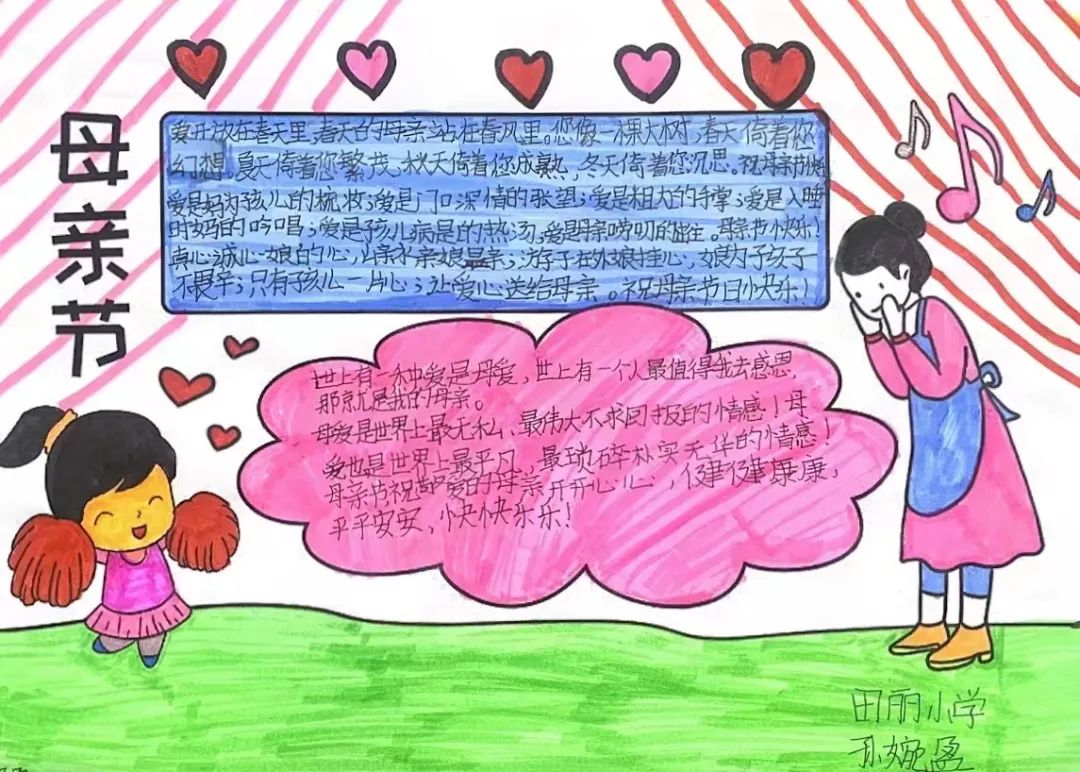 母亲节
爱开放在春天里,春天的母亲站在春风里。您像一棵大树,春天倚着您
幻想。夏天倚着您繁茂,秋天倚着您成熟,冬天倚着您沉思。祝母亲节快
爱是妈为孩儿的梳妆;爱是门口深情的张望;爱是粗大的手掌;爱是入睡
时妈的吟唱;爱是孩儿病是的热汤;爱是母亲唠叨的。母亲节快乐!
真心诚心娘的心,亲不亲娘最亲;游子在外娘挂心,娘为了孩子
不畏辛;只有孩儿一片心;让爱心送给母亲。祝母亲节日快乐!
世上有一种爱是母爱,世上有一个人最值得我去感恩,
那就是我的母亲。
母爱是世界上最无私、最伟大不求回报的情感!母
爱也是世界上最平凡,最琐碎朴实无华的情感!
母亲节祝爱的母亲开开心心,健健康康,
平平安安,快快乐乐!
田丽小学
孙婉盈